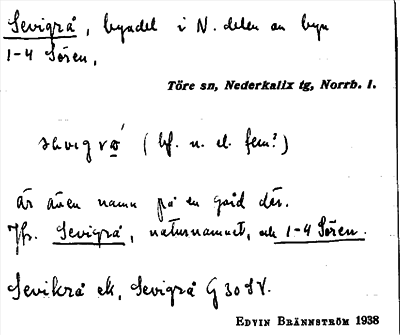 Sevigrå, byndel i N. delen av byn
1-4 Sören.
Töre sn, Nederkalix tg, Norrb. l.
(bf. n. el. fem?)
är även namn på en gård där.
Jfr. Sevigrå, naturnamnet, och 1-4 Sören.
Sevikrå ek, Sevigrå G 30 SV.
EDVIN BRÄNNSTRÖM 1938